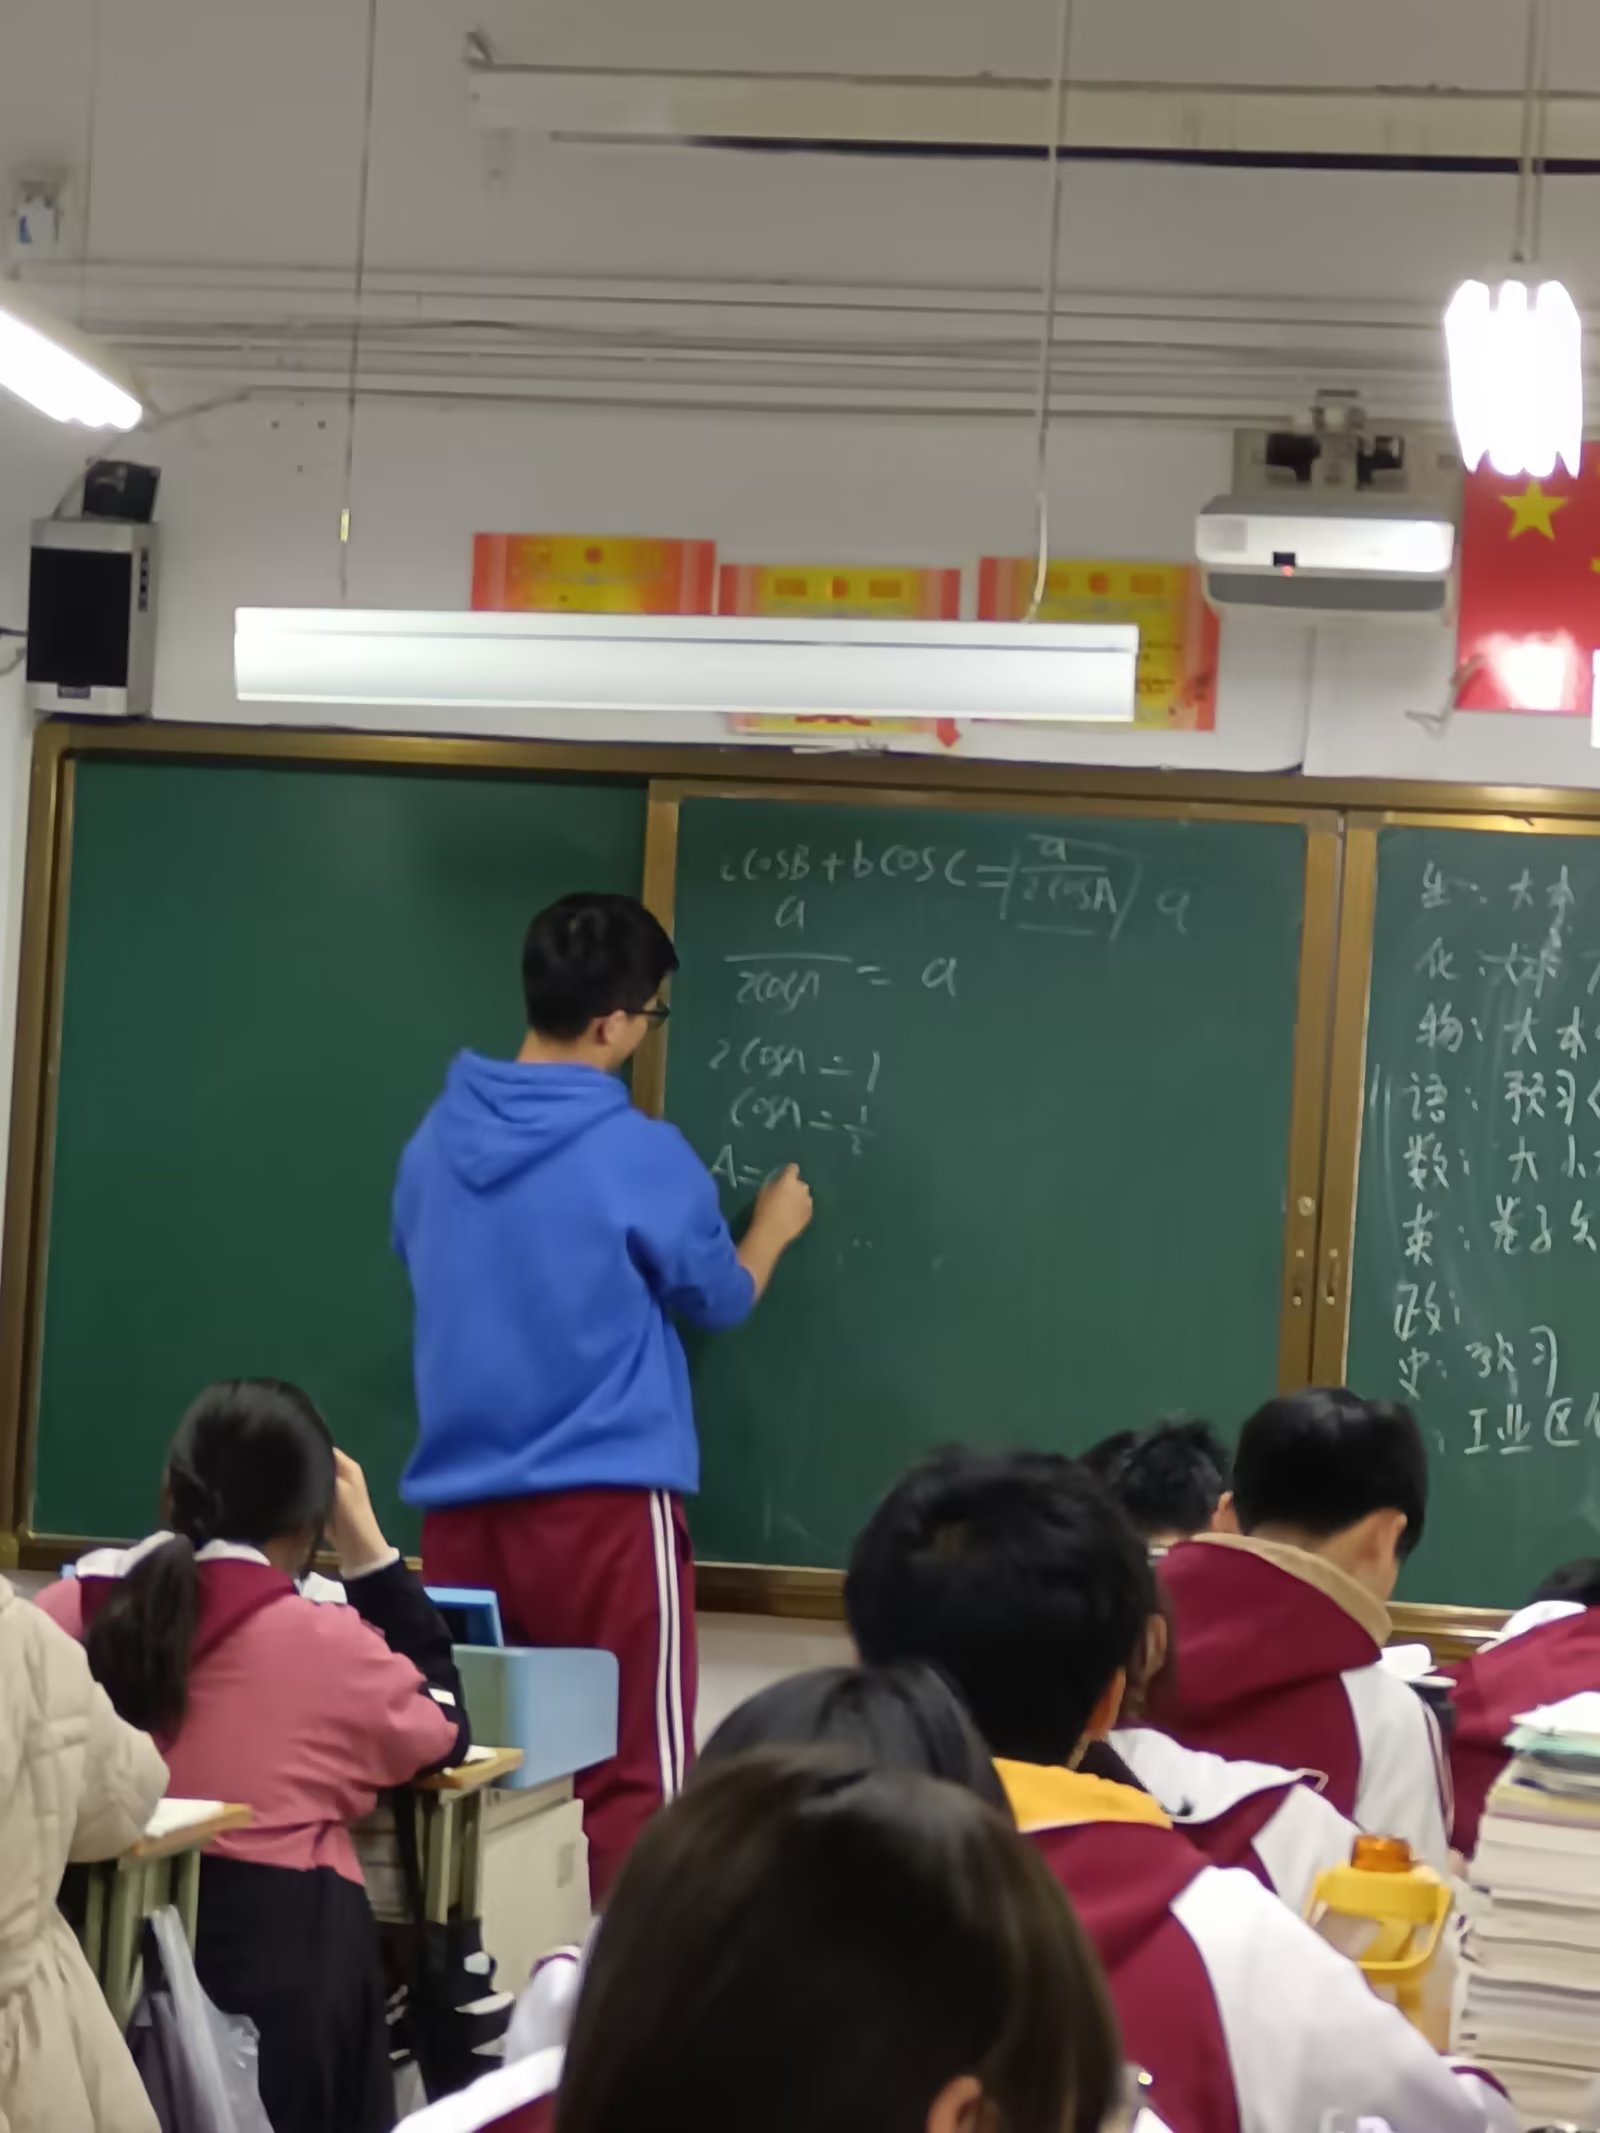 cCosB+bCosC=a/2CosA a
a/2cosA = a
2CosA=1
CosA=1/2
A=
生:大本
化:大本
物:大本
语:预习
数:大小
英:卷子
政:
史:预习
工业区